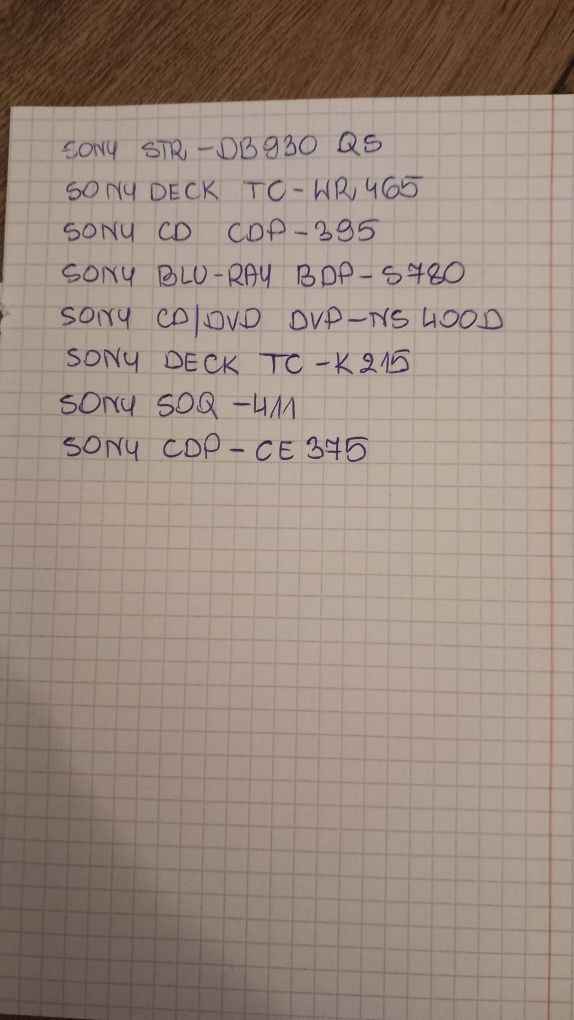 SONY STR-DB930 QS
SONY DECK TC-WR465
SONY CD CDP-395
SONY BLU-RAY BDP-S780
SONY CD/DVD DVP-NS400D
SONY DECK TC-K215
SONY SOQ-411
SONY CDP-CE375